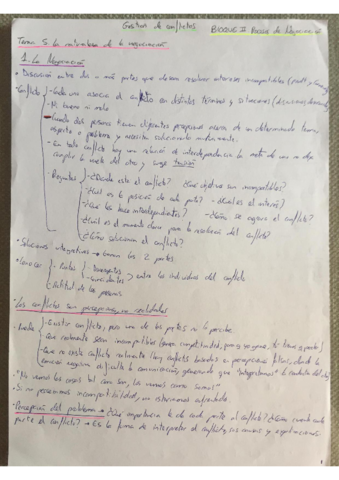 Gestión de conflictos BLOQUE II Proceso de Negociación
Tema 5. La naturaleza de la negociación
1. La Negociación
• Discusión entre dos o más partes que desean resolver intereses incompatibles
• Conflicto - Suele una asocia el conflicto en distintos términos y situaciones
- Ni bueno ni malo
- Cuando dos personas tienen diferentes percepciones acerca de un determinado tema,
aspecto o problema y necesitan solucionarlo
- En todo conflicto hay una relación de interdependencia la meta de uno no deja
cumplir la meta del otro, surge tensión
Preguntas - ¿Dónde está el conflicto? ¿Qué objetivos son incompatibles?
- ¿Cuál es la posición de cada parte? - ¿Cuál es el interés?
- ¿Que los hace interdependientes? - ¿Cómo se expresa el conflicto?
- ¿Cuál es el momento clave para la resolución del conflicto?
- ¿Cómo solucionan el conflicto?
• Soluciones integrativas → ganan las 2 partes
• Conocer - Puntos - Divergentes
- Coincidentes entre los individuos del conflicto
- Actitud de las personas
• Los conflictos son percepciones, no realidades
• Puede - Existir conflicto, pero una de las partes no lo percibe
- Que realmente sean incompatibles
- Que no exista conflicto realmente. Hay conflicto basados en percepciones falsas, donde la
emoción negativa dificulta la comunicación, generando que "interpretemos" la conducta del otro
• "No vemos las cosas tal como son, las vemos como somos"
• Si no percibimos incompatibilidad, no estaremos enfrentados
• Percepción del problema → ¿Qué importancia le da cada parte al conflicto? ¿Cómo cada
parte el conflicto? → Es la forma de interpretar el conflicto, sus causas y